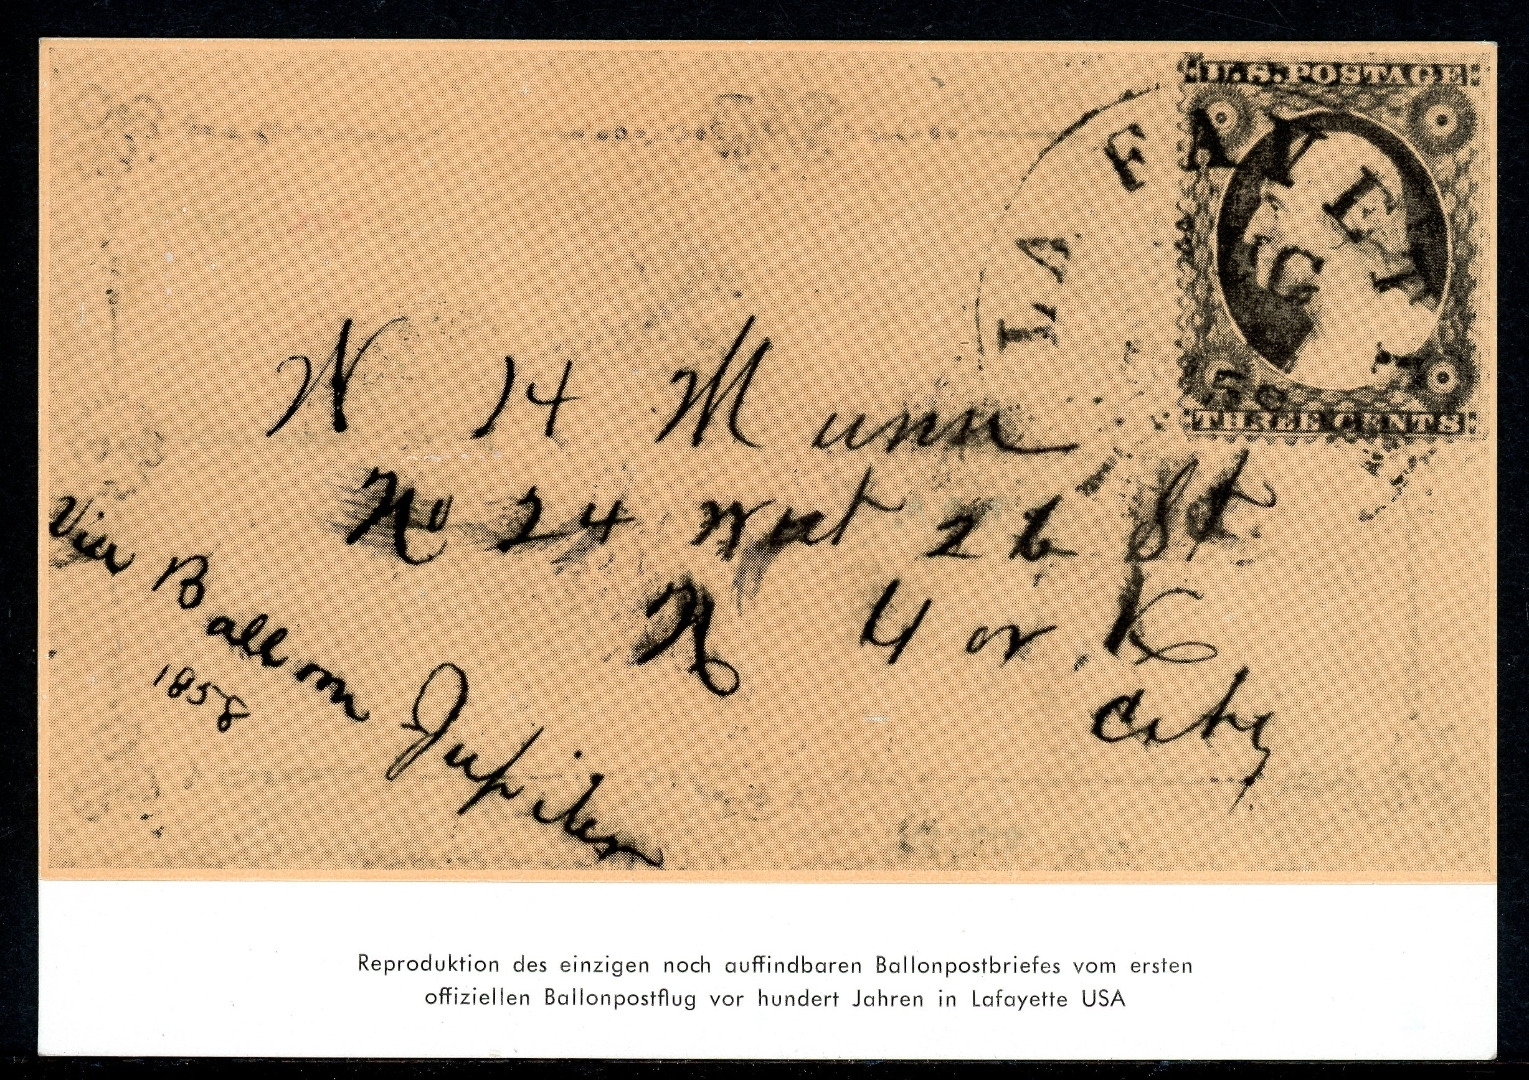 U.S. POSTAGE
LA FAYETT
THREE CENTS
W H Munn
No 24 West 26 St
N York
City
Via Balloon Jupiter
1858
Reproduktion des einzigen noch auffindbaren Ballonpostbriefes vom ersten
offiziellen Ballonpostflug vor hundert Jahren in Lafayette USA